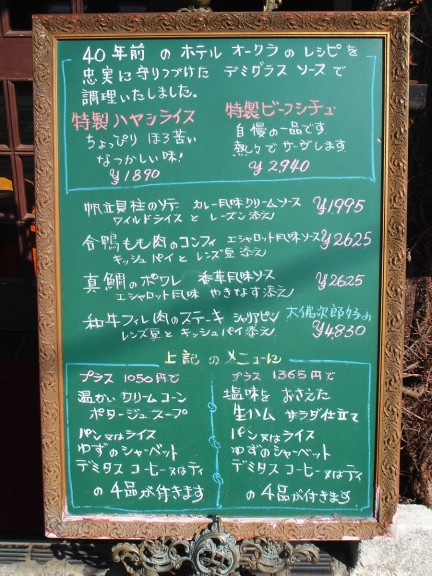 40年前 の ホテル オークラ の レシピ を
忠実に守りつづけた デミグラス ソース で
調理いたしました。
特製ハヤシライス
ちょっぴり ほろ苦い
なつかしい味!
¥1890
特製ビーフシチュー
自慢の一品です
熱々でサーブします
¥2,940
帆立貝柱のソテー カレー風味クリームソース ¥1,995
ワイルドライス と レーズン 添え
合鴨もも肉のコンフィ エシャロット風味ソース ¥2625
キッシュ パイ と レンズ豆 添え
真鯛のポワレ 香草風味ソース ¥2625
エシャロット風味 やきなす添え
和牛フィレ肉のステーキ シャリアピン 大佛次郎好み
レンズ豆 と キッシュパイ 添え ¥4,830
上記 の メニューに
プラス 1050円で
温かい クリーム コーン
ポタージュ スープ
パン 又は ライス
ゆずの シャーベット
デミタス コーヒー 又は ティ
の 4品が付きます
プラス 1365円で
塩味を おさえた
生ハム サラダ仕立て
パン 又は ライス
ゆずの シャーベット
デミタス コーヒー 又は ティ
の 4品が付きます